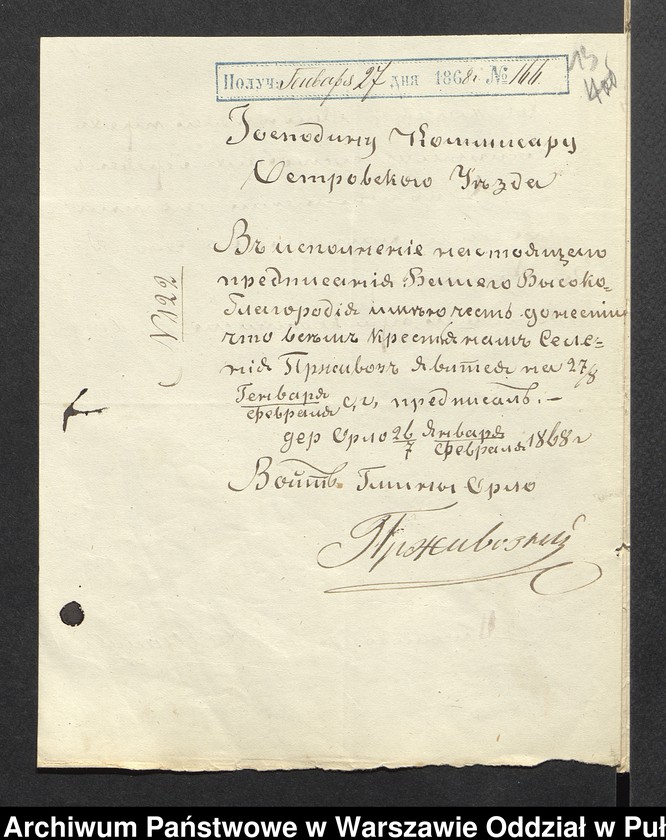 Получ: Генваря 27 дня 1868 г № 166
Господину Коммисару
Островского Уѣзда
Въ исполненіе настоящаго
предписанія Вашего Высоко-
благородія имѣю честь донести
что всѣмъ крестьянамъ Селе-
нія Прживозъ явится на 27/8
Генваря/Февраля с. г. предписалъ. —
дер Орло 26/7 Января/Февраля 1868 г
Войтъ Гмины Орло
Прживозкій
N 122
Archiwum Państwowe w Warszawie Oddział w Puł